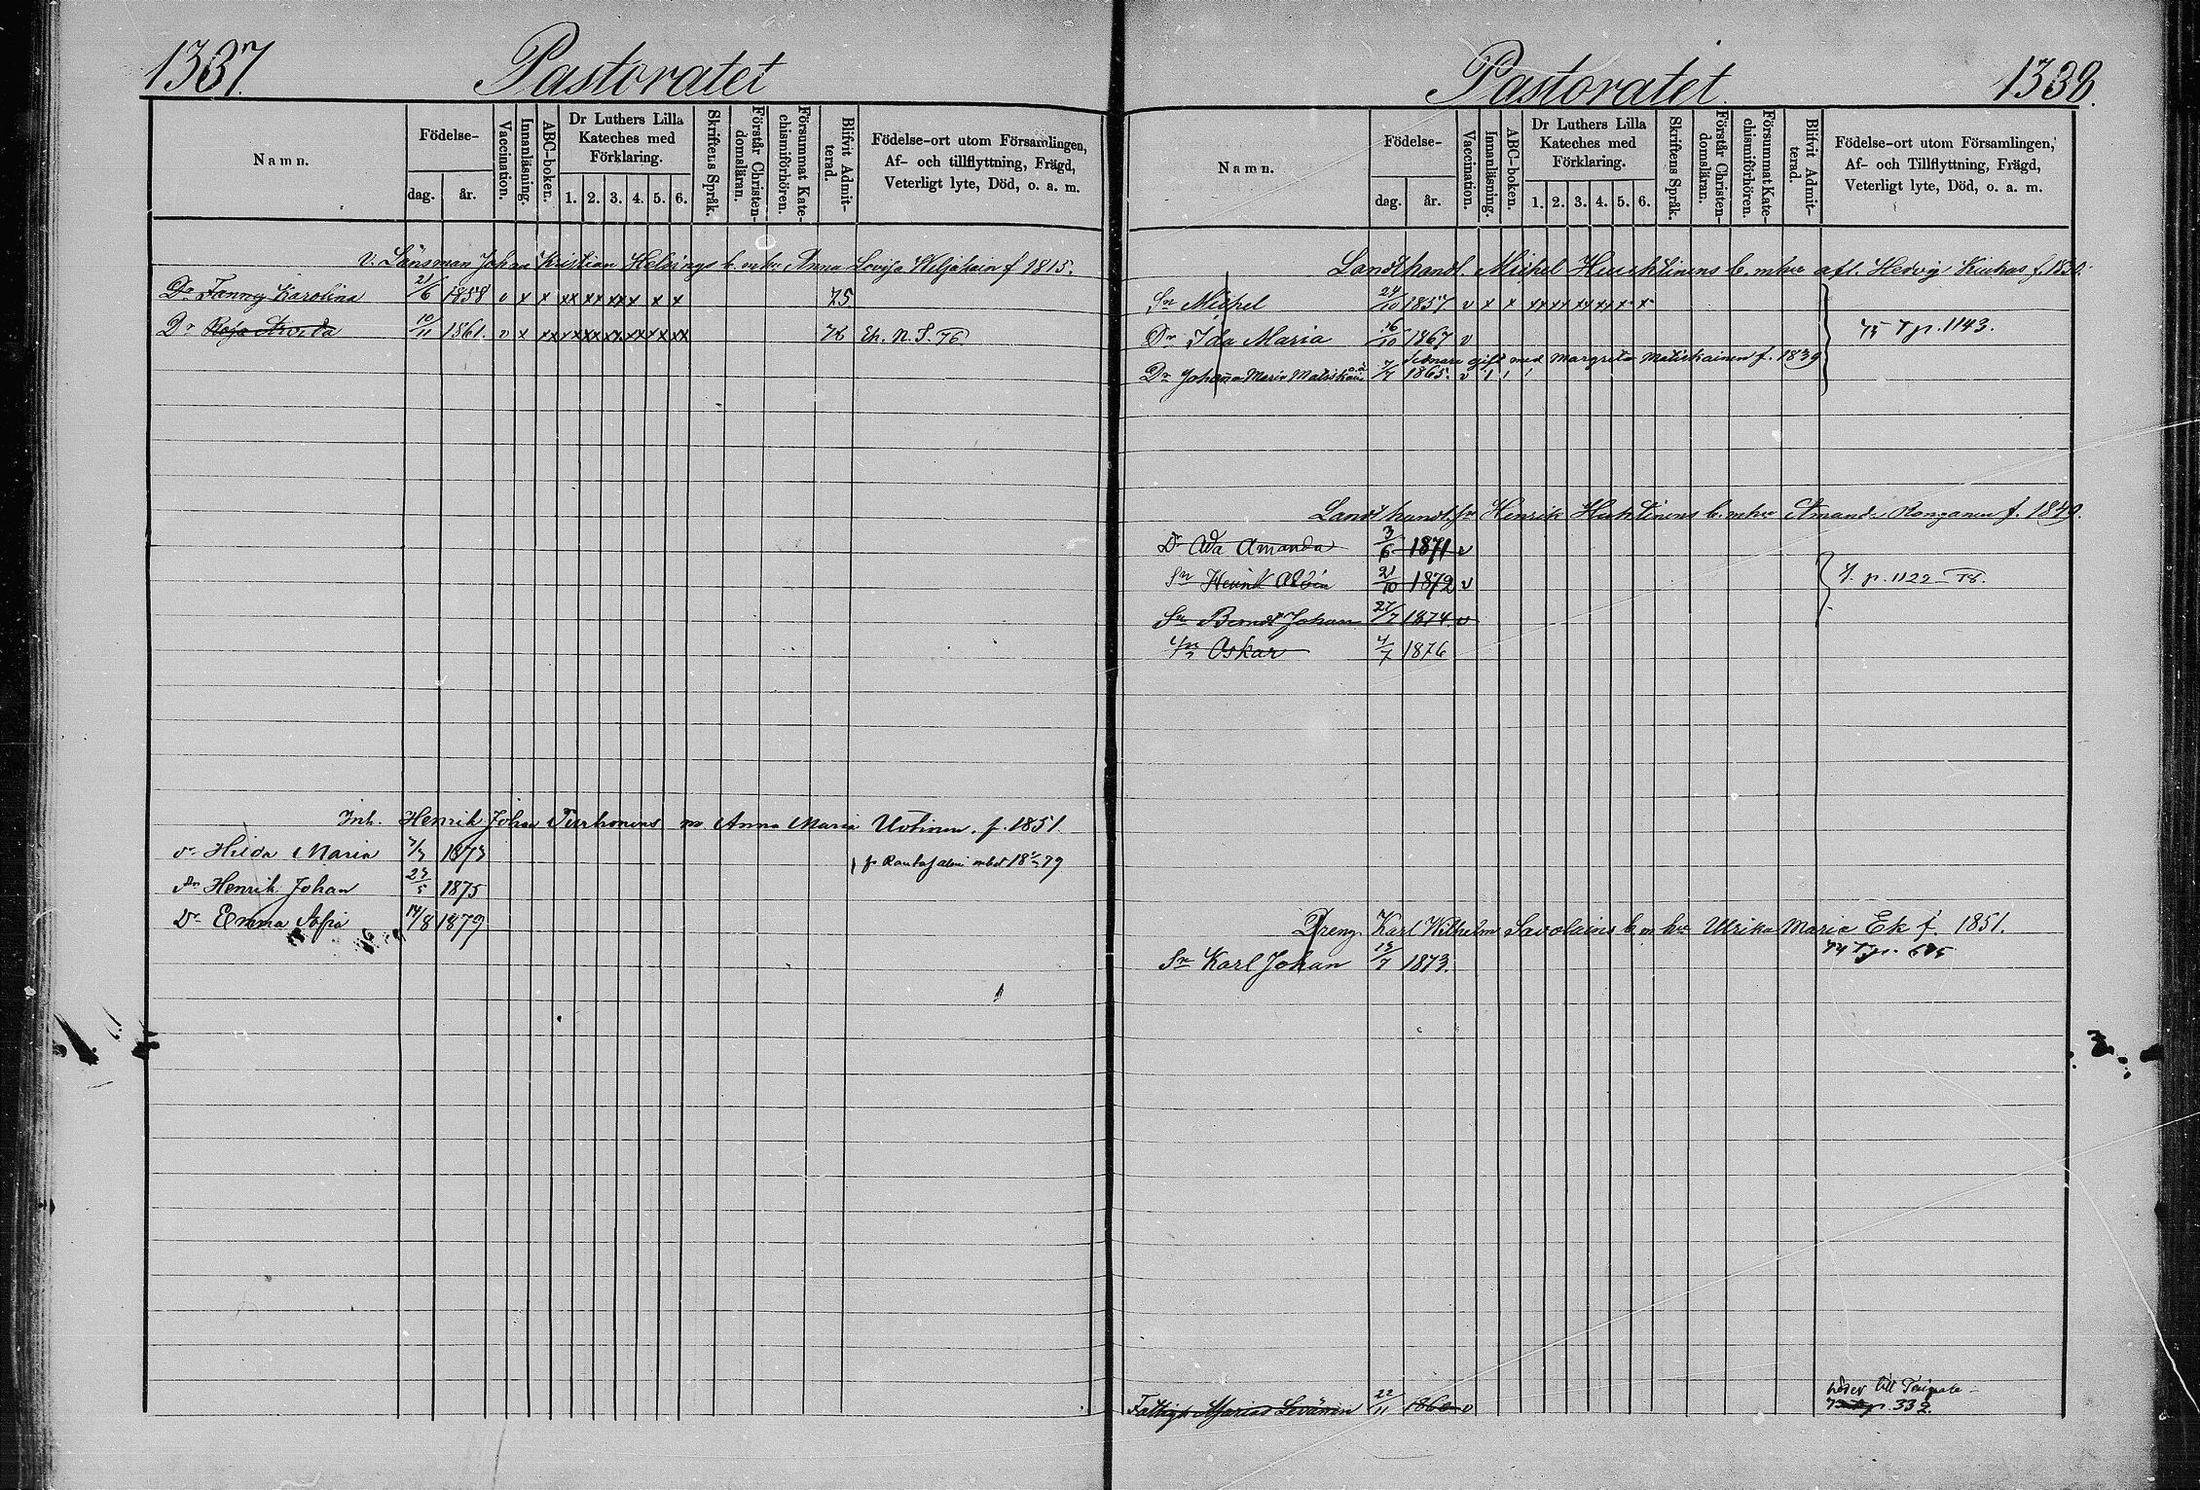 1337.
Pastoratet
Namn.
Födelse-
dag.
år.
Vaccination.
Innanläsning.
ABC-boken.
Dr Luthers Lilla
Kateches med
Förklaring.
1. 2. 3. 4. 5. 6.
Skriftens Språk.
Förstår Christen-
domsläran.
Försummat Kate-
chismiförhören.
Blifvit Admit-
terad.
Födelse-ort utom Församlingen,
Af- och tillflyttning, Frägd,
Veterligt lyte, Död, o. a. m.
v. Länsman Johan Kristian Helsings b. m. hu Anna Lovisa f 1815.
Dr Fanny Karolina 21/6 1858 v x x xx xx xx x x x 75
Dr Rosa 10/11 1861. v x xx xx xx xx xx xx xx 76 Eh. N. S. 76.
Inh. Henrik Johan Turhonens m Anna Maria Uotinen. f. 1851
Dr Hilda Maria 7/3 1873 fr Rantasalmi mbet 79
Sn Henrik Johan 23/5 1875
Dr Emma Sofia 14/8 1879
Pastoratet.
1338.
Namn.
Födelse-
dag.
år.
Vaccination.
Innanläsning.
ABC-boken.
Dr Luthers Lilla
Kateches med
Förklaring.
1. 2. 3. 4. 5. 6.
Skriftens Språk.
Förstår Christen-
domsläran.
Försummat Kate-
chismiförhören.
Blifvit Admit-
terad.
Födelse-ort utom Församlingen,
Af- och Tillflyttning, Frägd,
Veterligt lyte, Död, o. a. m.
Landthandl. Michel Huuhtinens b. m hu afl. Hedvig f. 1830.
Sn Michel 24/10 1857. v x x xx xx xx xx x x
Dr Ida Maria 16/10 1867 v 75 T p. 1143.
sednare gift med Margreta Matiskainen f. 1839
Dr Johanna Maria 1865. v 1 1 1
Landthandl. Henrik Huhtinens b. m hu Amanda Ronganen f. 1849.
Dr Ada Amanda 3/6 1871 v
Sn Henrik Albin 21/10 1872 v T. p. 1122 - 78.
Sn Berndt Johan 27/7 1874. v
Sn Oskar 4/7 1876
Dreng. Karl Wilhelm Savolains b. m hu Ulrika Maria Ek f. 1851.
Sn Karl Johan 1873. 74 T p. 605
Fattigh Maria Levänen 22/11 1860 v
hörer till
p. 332.